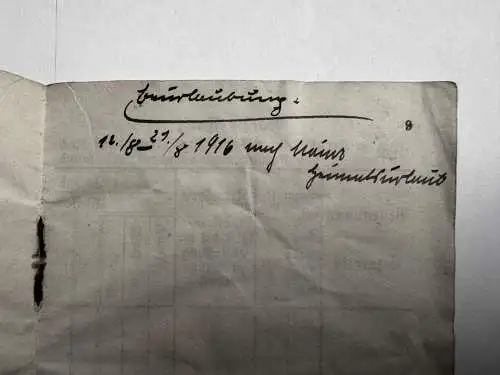 Beurlaubung.
8
12./8 – 27./8 1916 nach Mainz
Heimatsurlaub